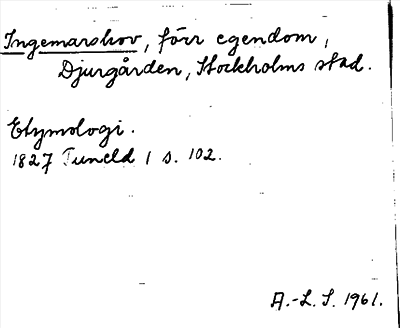 Ingemarshov, förr egendom,
Djurgården, Stockholms stad.
Etymologi.
1827 Tuneld 1 s. 102.
A.-L. S. 1961.